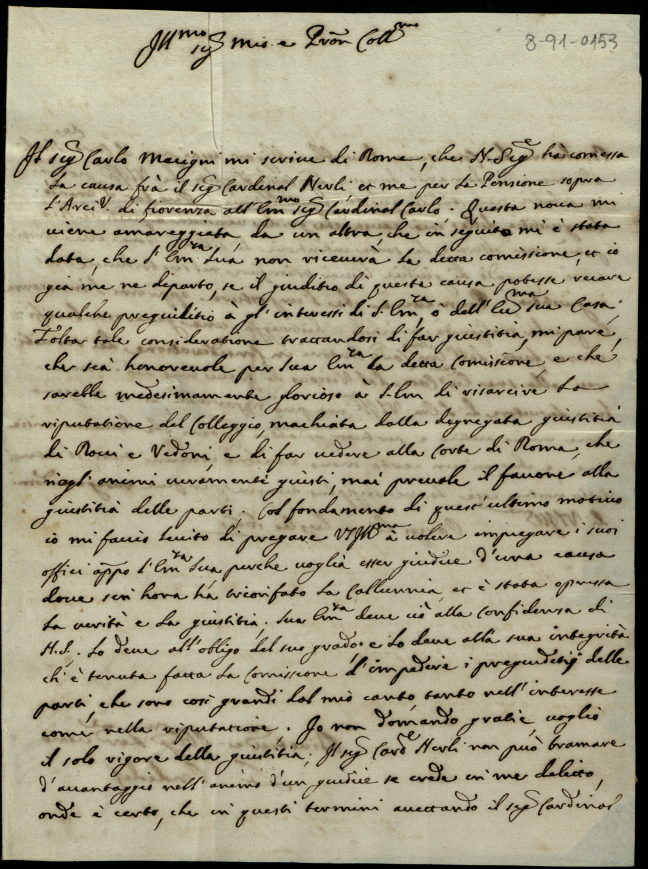 Ill.mo
sig.r mio e Pron Coll.mo
8-91-0153
Il sig.r Carlo Macigni mi scrive di Roma, che N. Sig.e hà comessa
la causa frà il sig.r Cardinal Nerli, et me per la Pensione sopra
l'Arciv. di fiorenza all'Em.mo sig.r Cardinal Carlo. Questa nova mi
viene amareggiata, da un altra, che in seguito mi è stata
data, che S. Em.za Sua non riceverà la detta comissione, et io
già me ne diparto, se il giuditio di questa causa potesse recare
qualche pregiuditio à gl'interessi di S. Em.za, ò dell' sua Casa.
Tolta tale consideratione trattandosi di far giustitia, mi pare,
che sia honorevole per sua Em.za la detta Comissione, e che
sarebbe medesimamente glorioso à S. Em. di risarcire la
riputatione del Colleggio, machiata dalla denegata giustitia
di Rocci e Vidoni, e di far vedere alla Corte di Roma, che
negl'animi veramente giusti, mai prevale il favore alla
giustitia delle parti. Col fondamento di quest'ultimo motivo
io mi faccio lecito di pregare VS Ill.ma à volere impiegare i suoi
offici appo l'Em.za Sua perche voglia esser giudice d'una causa
dove sin hora hà triomfato la Callunnia, et è stata opressa
la verità e la giustitia. Sua Em.za deve ciò alla confidenza di
N.S. lo deve all'obligo del suo grado e lo deve alla sua integrità
ch'è tenuta fatta la Comissione d'impedire i pregiuditij delle
parti, che sono così grandi dal mio canto tanto nell'interesse
come nella riputatione. Io non domando gratie, voglio
il solo vigore della giustitia. Il sig.r Card.e Nerli non può bramare
d'avantaggio nell'animo d'un giudice se crede in me delitto,
onde è certo, che in questi termini accettando il sig.r Cardinal